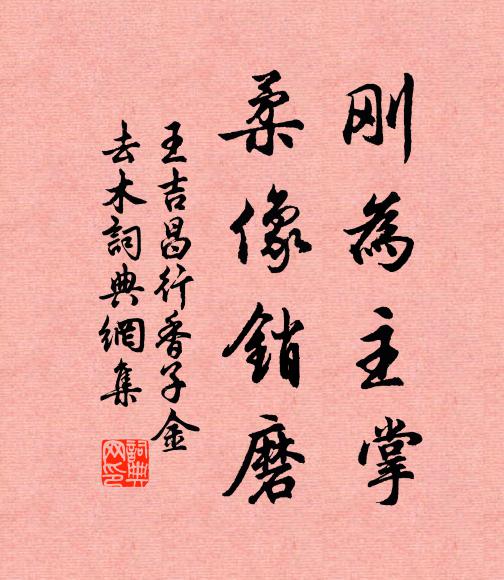 刚為主掌
柔像銷磨
王吉昌行香子金
去木詞典網集
詞典网印